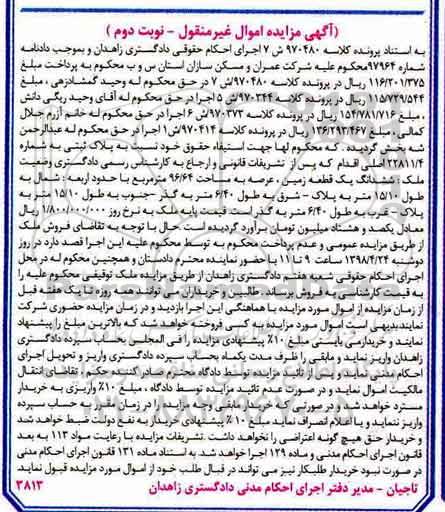 (آگهی مزایده اموال غیرمنقول - نوبت دوم )
به استناد پرونده کلاسه ۹۷۰۴۸۰ ش ۷ اجرای احکام حقوقی دادگستری زاهدان و بموجب دادنامه
شماره ۹۷۹۶۴ محکوم علیه شرکت عمران و مسکن سازان استان س و ب محکوم به پرداخت مبلغ
۱۱۶/۲۰۱/۳۷۵ ریال در پرونده کلاسه ۹۷۰۴۸۰/ش ۷ در حق محکوم له وحید گمشادزهی ، مبلغ
۱۱۵/۷۲۹/۵۴۴ ریال در پرونده کلاسه ۹۷۰۳۴۴/ش ۵ اجرا در حق محکوم له آقای وحید ریگی دانش
، مبلغ ۱۵۴/۷۸۱/۷۱۶ ریال در پرونده کلاسه ۹۷۰۳۷۳/ش ۶ اجرا در حق محکوم له خانم آزرم جلال
کمالی ، مبلغ ۱۳۶/۲۹۳/۴۶۷ ریال در پرونده کلاسه ۹۷۰۴۱۴/ش۱ اجرا در حق محکوم له عبدالرحمن
شه بخش گردیده ، که محکوم لها جهت استیفاء حقوق خود نسبت به پلاک ثبتی به شماره
۲۲۸۱۱/۴ اصلی اقدام که پس از تشریفات قانونی و ارجاع به کارشناس رسمی دادگستری وضعیت
ملک ، ششدانگ یک قطعه زمین ، عرصه به مساحت ۹۶/۶۴ مترمربع با حدود اربعه : شمال به
طول ۱۵/۱۰ متر به پلاک – شرق به طول ۶/۴۰ متر به گذر –جنوب به طول ۱۵/۱۰ متر به
پلاک – غرب به طول ۶/۴۰ متر به گذر است. قیمت پایه ملک به نرخ روز ۱/۸۰۰/۰۰۰/۰۰۰ ریال
معادل یکصد و هشتاد میلیون تومان برآورد گردیده است. حال با توجه به تقاضای فروش ملک
از طریق مزایده عمومی و عدم پرداخت محکوم به توسط محکوم علیه این اجرا قصد دارد در روز
دوشنبه ۱۳۹۸/۴/۲۴ ساعت ۹ تا ۱۱ با حضور نماینده محترم دادستان و همچنین محکوم له در محل
اجرای احکام حقوقی شعبه هفتم دادگستری زاهدان از طریق مزایده ملک توقیفی محکوم علیه را
به قیمت کارشناسی به فروش برساند. طالبین و خریداران می توانند همه روزه تا یک هفته قبل
از زمان مزایده از اموال مورد مزایده با هماهنگی این اجرا بازدید و در زمان مزایده حضوری شرکت
نمایند.بدیهی است اموال مورد مزایده به کسی فروخته خواهد شد که بالاترین مبلغ را پیشنهاد
نمایند و خریدارمی بایستی مبلغ ۱۰٪ پیشنهادی مزایده را فی المجلس بحساب سپرده دادگستری
زاهدان واریز نماید و مابقی را ظرف مدت یکماه بحساب سپرده دادگستری واریز و تحویل اجرای
احکام مدنی نماید و پس از تائید مزایده توسط دادگاه محترم صادر کننده حکم ، تقاضای انتقال
مالکیت اموال نماید و در صورت عدم تائید مزایده توسط دادگاه ، مبلغ ۱۰٪ واریزی به خریدار
مسترد خواهد شد و در صورتی که خریدار مابقی وجه مزایده را در زمان مقرر به حساب سپرده
واریز ننماید و یا اعلام انصراف نماید مبلغ ۱۰٪ پیشنهادی خریدار به نفع دولت ضبط خواهد شد
و خریدار حق هیچ گونه اعتراضی را نخواهد داشت. تشریفات مزایده با رعایت مواد ۱۱۳ به بعد
قانون اجرای احکام مدنی و ماده ۱۲۹ اجرا خواهد شد. به استناد ماده ۱۳۱ قانون اجرای احکام مدنی
در صورت نبود خریدار طلبکار نیز می تواند در قبال طلب خود از اموال مورد مزایده قبول نماید.
تاجیان - مدیر دفتر اجرای احکام مدنی دادگستری زاهدان ۳۸۱۳